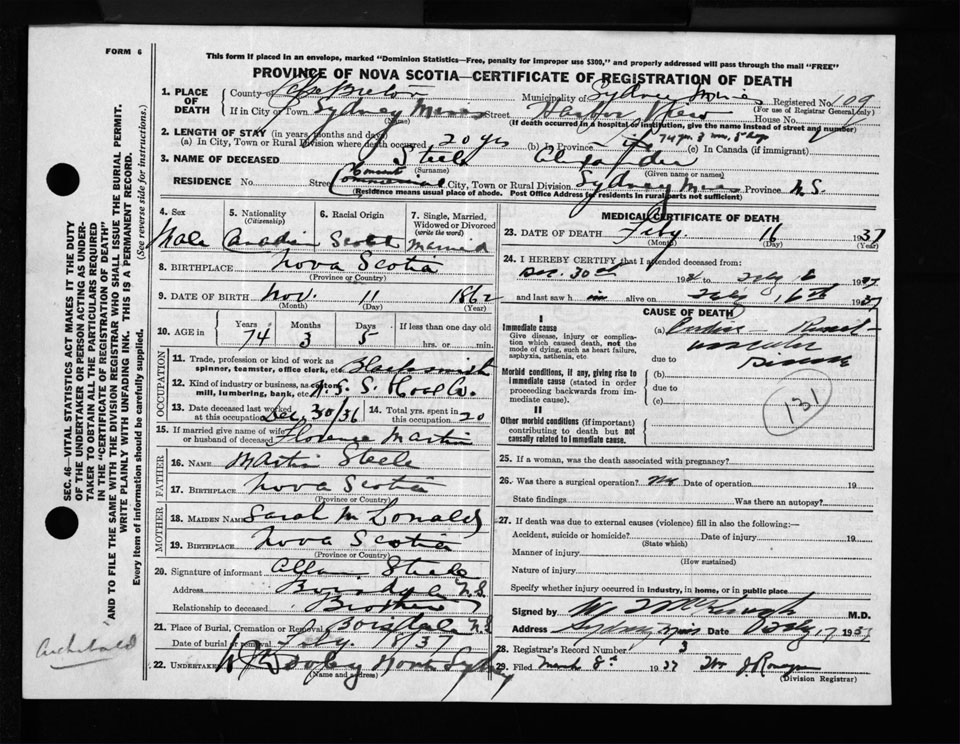 FORM 6
This form if placed in an envelope, marked "Dominion Statistics—Free, penalty for improper use $300," and properly addressed will pass through the mail "FREE"
PROVINCE OF NOVA SCOTIA—CERTIFICATE OF REGISTRATION OF DEATH
1. PLACE OF DEATH County of Cape Breton Municipality of Sydney Mines Registered No. 109
(For use of Registrar General only)
If in City or Town Sydney Mines Street Harbor View House No.
(Name) (If death occurred in a hospital or institution, give the name instead of street and number)
2. LENGTH OF STAY (in years, months and days)
(a) In City, Town or Rural Division where death occurred 20 yrs (b) In Province 74 yr. 3 mon, 5 days (c) In Canada (if immigrant)
3. NAME OF DECEASED Steele Alexander
(Surname) (Given name or names)
RESIDENCE No. Street Commercial City, Town or Rural Division Sydney Mines Province N.S.
(Residence means usual place of abode. Post Office Address for residents in rural parts not sufficient)
4. Sex 5. Nationality (Citizenship) 6. Racial Origin 7. Single, Married, Widowed or Divorced (write the word)
Male Canadian Scotch Married
8. BIRTHPLACE Nova Scotia
(Province or Country)
9. DATE OF BIRTH Nov. 11 1862
(Month) (Day) (Year)
10. AGE in Years Months Days If less than one day old
74 3 5 hrs. or min.
OCCUPATION
11. Trade, profession or kind of work as spinner, teamster, office clerk, etc. Blacksmith
12. Kind of industry or business, as cotton mill, lumbering, bank, etc. N. S. Coal Co.
13. Date deceased last worked at this occupation Dec. 30/36 14. Total yrs. spent in this occupation 20
15. If married give name of wife or husband of deceased Florence Martin
FATHER
16. NAME Martin Steele
17. BIRTHPLACE Nova Scotia
(Province or Country)
MOTHER
18. MAIDEN NAME Sarah McDonald
19. BIRTHPLACE Nova Scotia
(Province or Country)
20. Signature of informant Allan Steele
Address Boisdale N.S.
Relationship to deceased Brother
21. Place of Burial, Cremation or Removal Boisdale N.S.
Date of burial or removal
22. UNDERTAKER Dooley North Sydney
(Name and address)
MEDICAL CERTIFICATE OF DEATH
23. DATE OF DEATH Feby. 16 1937
(Month) (Day) (Year)
24. I HEREBY CERTIFY that I attended deceased from:
Dec. 30th 193 to Feby 1937
and last saw him alive on Feby 16th 1937
CAUSE OF DEATH
I
Immediate cause
Give disease, injury or complication which caused death, not the mode of dying, such as heart failure, asphyxia, asthenia, etc.
(a) Cardiac Renal-
vascular
Disease
due to
Morbid conditions, if any, giving rise to immediate cause (stated in order proceeding backwards from immediate cause).
(b)
due to
(c)
131
II
Other morbid conditions (if important) contributing to death but not causally related to immediate cause.
25. If a woman, was the death associated with pregnancy?
26. Was there a surgical operation? No Date of operation 19
State findings Was there an autopsy?
27. If death was due to external causes (violence) fill in also the following:—
Accident, suicide or homicide? Date of injury 19
(State which)
Manner of injury
(How sustained)
Nature of injury
Specify whether injury occurred in industry, in home, or in public place
Signed by M.D.
Address Sydney Mines Date Feby 17 1937
28. Registrar's Record Number 3
29. Filed March 8th 1937
(Division Registrar)
SEC. 46—VITAL STATISTICS ACT MAKES IT THE DUTY
OF THE UNDERTAKER OR PERSON ACTING AS UNDERTAKER
TO OBTAIN ALL THE PARTICULARS REQUIRED
IN THE "CERTIFICATE OF REGISTRATION OF DEATH"
AND TO FILE THE SAME WITH THE DIVISION REGISTRAR WHO SHALL ISSUE THE BURIAL PERMIT.
WRITE PLAINLY WITH UNFADING INK. THIS IS A PERMANENT RECORD.
Every item of information should be carefully supplied. (See reverse side for instructions.)
Archibald